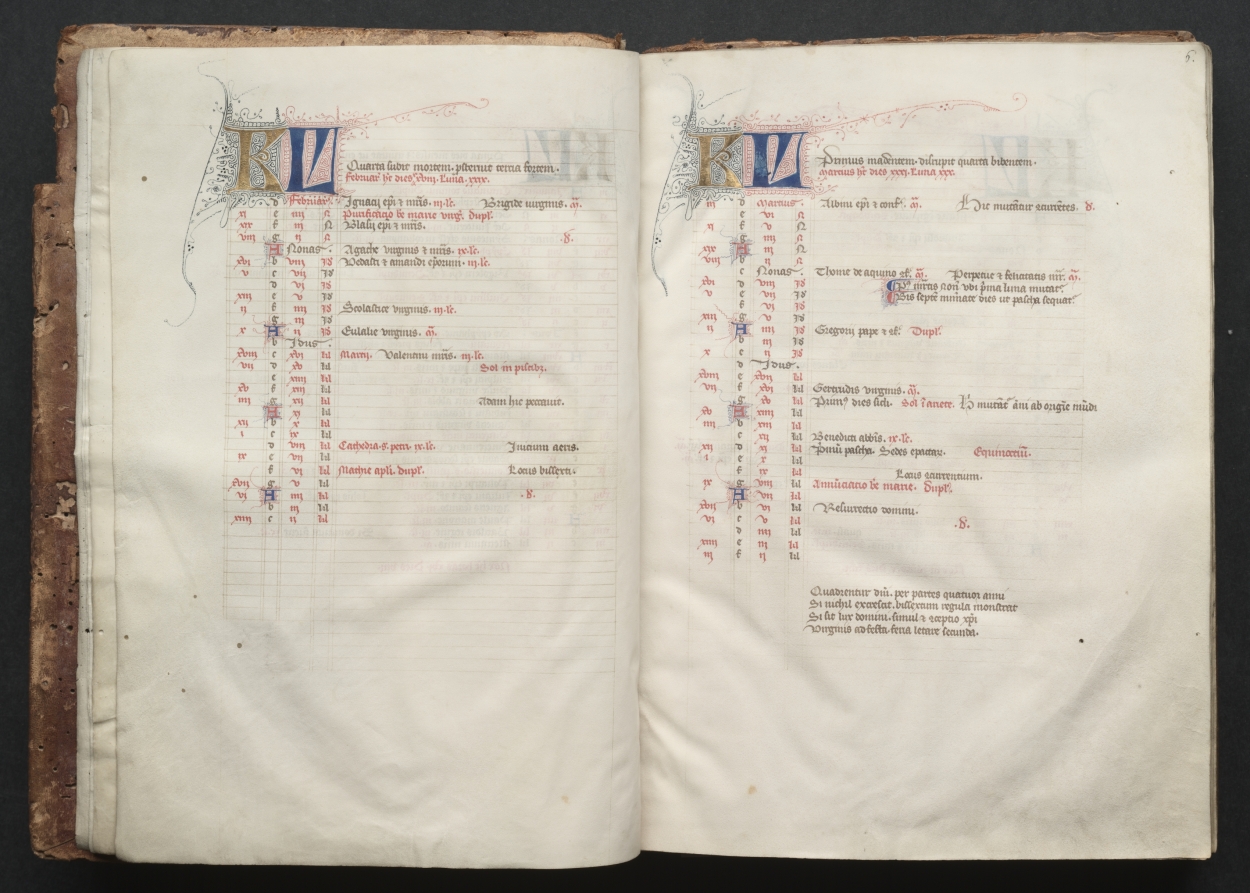 KL
Quarta subit mortem. prosternit tercia fortem.
Februarius habet dies xxviii. Luna xxix.
d Februarius Ignacii epi et mris. iii. lc. Brigide virginis. m.
xi e iiii N Purificatio be marie virg. Dupl.
xix f iii N Blasii epi et mris.
viii g ii N .d.
A Nonas. Agathe virginis et mris. ix. lc.
xvi b viii Id Vedasti et amandi eporum. iii. lc.
v c vii Id
d vi Id
xiii e v Id
ii f iiii Id Scolastice virginis. iii. lc.
g iii Id
x A ii Id Eulalie virginis. m.
b Idus.
xviii c xvi kl Marcii. Valentini mris. iii. lc.
vii d xv kl Sol in piscibus.
e xiiii kl
xv f xiii kl
iiii g xii kl Adam hic peccavit.
A xi kl
xii b x kl
i c ix kl
d viii kl Cathedra s. petri. ix. lc. Inicium veris.
ix e vii kl
f vi kl Mathie apli. Dupl. Locus bissexti.
xvii g v kl
vi A iiii kl .d.
b iii kl
xiiii c ii kl
6.
KL
Primus mandentem. disrupit quarta bibentem.
Marcius habet dies xxxi. Luna xxx.
iii d Marcius. Albini epi et conf. m. Hic mutantur concurrentes. d.
e vi N
xi f v N
g iiii N
xix A iii N
viii b ii N
c Nonas. Thome de aquino et m. Perpetue et felicitatis mr. m.
xvi d viii Id
v e vii Id Bis septem nuntiate dies ut pascha sequatur.
f vi Id
xiii g v Id
ii A iiii Id Gregorii pape et Dupl.
b iii Id
x c ii Id
d Idus.
xviii e xvii kl
vii f xvi kl Gertrudis virginis. m.
g xv kl Primus dies secli. Sol in ariete. Hic mutantur anni ab origine mundi
xv A xiiii kl
iiii b xiii kl
c xii kl Benedicti abbis. ix. lc.
xii d xi kl Primum pascha. Sedes epactarum. Equinoctium.
i e x kl
f ix kl Locus concurrentium.
ix g viii kl Annunciacio be marie. Dupl.
A vii kl
xvii b vi kl Resurrectio domini.
vi c v kl .d.
d iiii kl
xiiii e iii kl
iii f ii kl
Quadrentur domini. per partes quatuor anni
Si nichil excrescit. bissextum regula monstrat
Si sit lux domini. simul et conceptio xpi
Virginis ad festum. feria letare secunda.